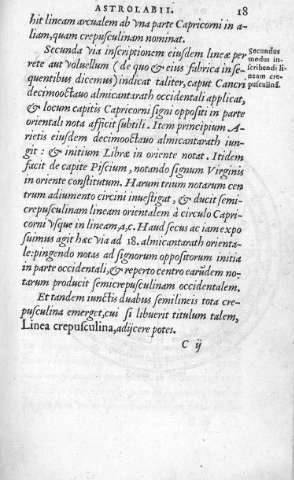 ASTROLABII. 18
hit lineam arcualem ab vna parte Capricorni in a-
liam, quam crepusculinam nominat.
Secunda via inscriptionem eiusdem lineæ per
rete aut voluellum (de quo & eius fabrica inse-
quentibus dicemus) indicat taliter, caput Cancri
decimooctauo almicantarath occidentali applicat,
& locum capitis Capricorni signi oppositi in parte
orientali nota afficit subtili. Item principium A-
rietis eiusdem decimooctauo almicantarath iun-
git: & initium Libræ in oriente notat. Itidem
facit de capite Piscium, notando signum Virginis
in oriente constitutum. Harum trium notarum cen
trum adiumento circini inuestigat, & ducit semi-
crepusculinam lineam orientalem à circulo Capri-
corni vsque in lineam, a, c. Haud secus ac iam expo
suimus agit hac via ad 18. almicantarath orienta-
le: pingendo notas ad signorum oppositorum initia
in parte occidentali, & reperto centro earũdem no-
tarum producit semicrepusculinam occidentalem.
Et tandem iunctis duabus semilineis tota cre-
pusculina emerget, cui si libuerit titulum talem,
Linea crepusculina, adijcere potes.
C ij
Secundus
modus in-
scribendi li-
neam cre-
pusculinā.